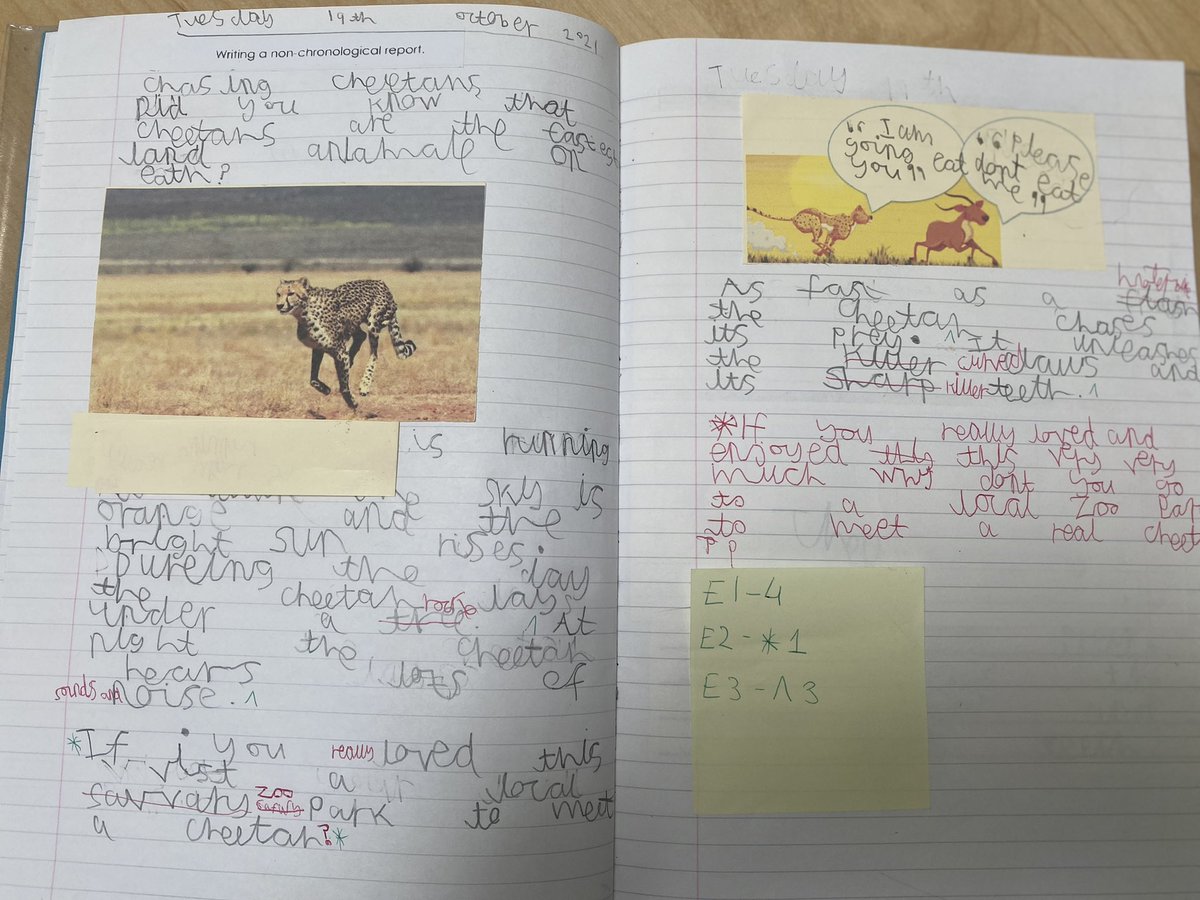 Tuesday 19th October 2021
Writing a non-chronological report.
chasing cheetahs
Did you know that
cheetahs are the fastest
land anlamale on
eath?
is running
the sky is
orange and the
bright sun rises.
Dureing the day
the cheetah lays
rock
under a tree. ^ At
night the cheetah
hears lots of
sounds and noise. ^
*If you really loved this
visit a local
zoo
savvary park to meet
a cheetah?*
Tuesday 19th
"I am
going eat
you"
"Please
dont eat
me"
As fast as a flash
the cheetah chases
its prey. ^ It unleashes
the killer curved claws and
its sharp killer teeth. ^
*If you really loved and
enjoyed this this very very
much why dont you go
to a local zoo
to meet a real cheet
P P
E1-4
E2-*1
E3-^3